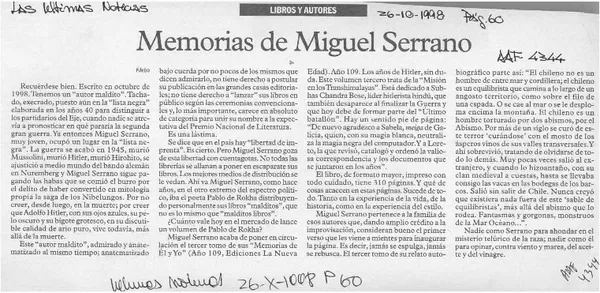 Las Ultimas Noticias
LIBROS Y AUTORES
26-10-1998
Pág. 60
Memorias de Miguel Serrano
AAF 4344
Filebo
Recuérdese bien. Escrito en octubre de
1998. Tenemos un "autor maldito". Tacha-
do, execrado, puesto aún en la "lista negra"
elaborada en los años 40 para distinguir a
los partidarios del Eje, cuando nadie se atre-
vía a pronosticar en qué pararía la segunda
gran guerra. Ya entonces Miguel Serrano,
muy joven, ocupó un lugar en la "lista ne-
gra". La guerra se acabó en 1945, murió
Mussolini, murió Hitler, murió Hirohito, se
ajustició a medio mundo del bando alemán
en Nuremberg y Miguel Serrano sigue pa-
gando las habas que se comió el burro por
el delito de haber convertido en mitología
propia la saga de los Nibelungos. Por no
creer desde chico, por creer, por preferir creer
que Adolfo Hitler, con sus ojos azules, su pe-
lo oscuro y su bigote grotesco, en su discuti-
ble calidad de ario puro, vive todavía, más
allá de la muerte.
Este "autor maldito", admirado y anate-
matizado al mismo tiempo; anatematizado
bajo cuerda por no pocos de los mismos que
dicen admirarlo, no tiene derecho a postular
su publicación en las grandes casas editoria-
les; no tiene derecho a "lanzar" sus libros en
público según las ceremonias convenciona-
les y, lo más importante, carece en absoluto
de categoría para unir su nombre a la expec-
tativa del Premio Nacional de Literatura.
Es una lástima.
Se dice que en el país hay "libertad de im-
prenta". Es cierto. Pero Miguel Serrano goza
de esta libertad con cuentagotas. No todas las
editoriales se allanan a poner en escaparate sus
libros. Los mejores medios de distribución se
le vedan. Ahí va Miguel Serrano, como hace
años, en el otro extremo del espectro político,
iba el poeta Pablo de Rokha distribuyen-
do personalmente sus libros "malditos", que
no es lo mismo que "malditos libros".
¿Cuánto vale hoy en el mercado de lance
un volumen de Pablo de Rokha?
Miguel Serrano acaba de poner en circula-
ción el tercer tomo de sus "Memorias de
Él y Yo" (Año 109, Ediciones La Nueva
Edad). Año 109. Los años de Hitler, sin du-
da. Este volumen trata de la "Misión
en los Transhimalayas". Está dedicado a Sub-
has Chandra Bose, líder hitlerista hindú, que
también desaparece al finalizar la Guerra y
que hoy debe de formar parte del "Último
batallón". Hay un sentido pie de página:
"De nuevo agradezco a Sabela, meiga de Ga-
licia, quien, con su magia blanca, neutrali-
za la magia negra del computador. Y a Lore-
to, la que revisó, catalogó y ordenó la valio-
sa correspondencia y los documentos que
se entregan aquí".
El libro, de formato mayor, impreso con
todo cuidado, tiene 510 páginas. Y qué de
cosas atascan en esas páginas. Sucede de to-
do. Tanto en la experiencia de la vida, de la
historia, como en la experiencia del estilo.
Miguel Serrano pertenece a la familia de
esos autores que, dando amplio crédito a la
improvisación, consideran bueno el primer
verso que les viene a mientes para inaugurar
la página. Es decir, jamás se espulga, jamás
se enmienda. El tercer tomo de su relato auto-
biográfico parte así: "El chileno no es un
hombre de entre mar y cordillera; el chileno
es un equilibrista que camina a lo largo de un
angosto territorio, como sobre el filo de una
espada. O se cae al mar o se le desplo-
ma encima la montaña. El chileno es un
hombre torturado por dos abismos, por el
Abismo. Por más de un siglo se curó de es-
te terror 'curándose' con el mosto de los
ásperos vinos de sus valles transversales. Y
ahí sobrevivía, tratando de olvidarse de to-
do lo demás. Muy pocas veces salió al ex-
terior, y cuando lo hizo montado, con su
afán medieval a cuestas, hasta se llevaba
consigo las vacas en las bodegas de los bar-
cos. Salió sin salir de Chile. Nunca creyó
que existiera nada fuera de este 'sable de
equilibristas', más allá del abismo que lo
rodea. Fantasmas y gorgonas, monstruos de
la Mar Océano...".
Nadie como Serrano para ahondar en el
misterio telúrico de la raza; nadie como él
para opinar, contra viento y marea, del acei-
te y del vinagre.
Ultimas Noticias 26-X-1998 P 60
AAF 4344